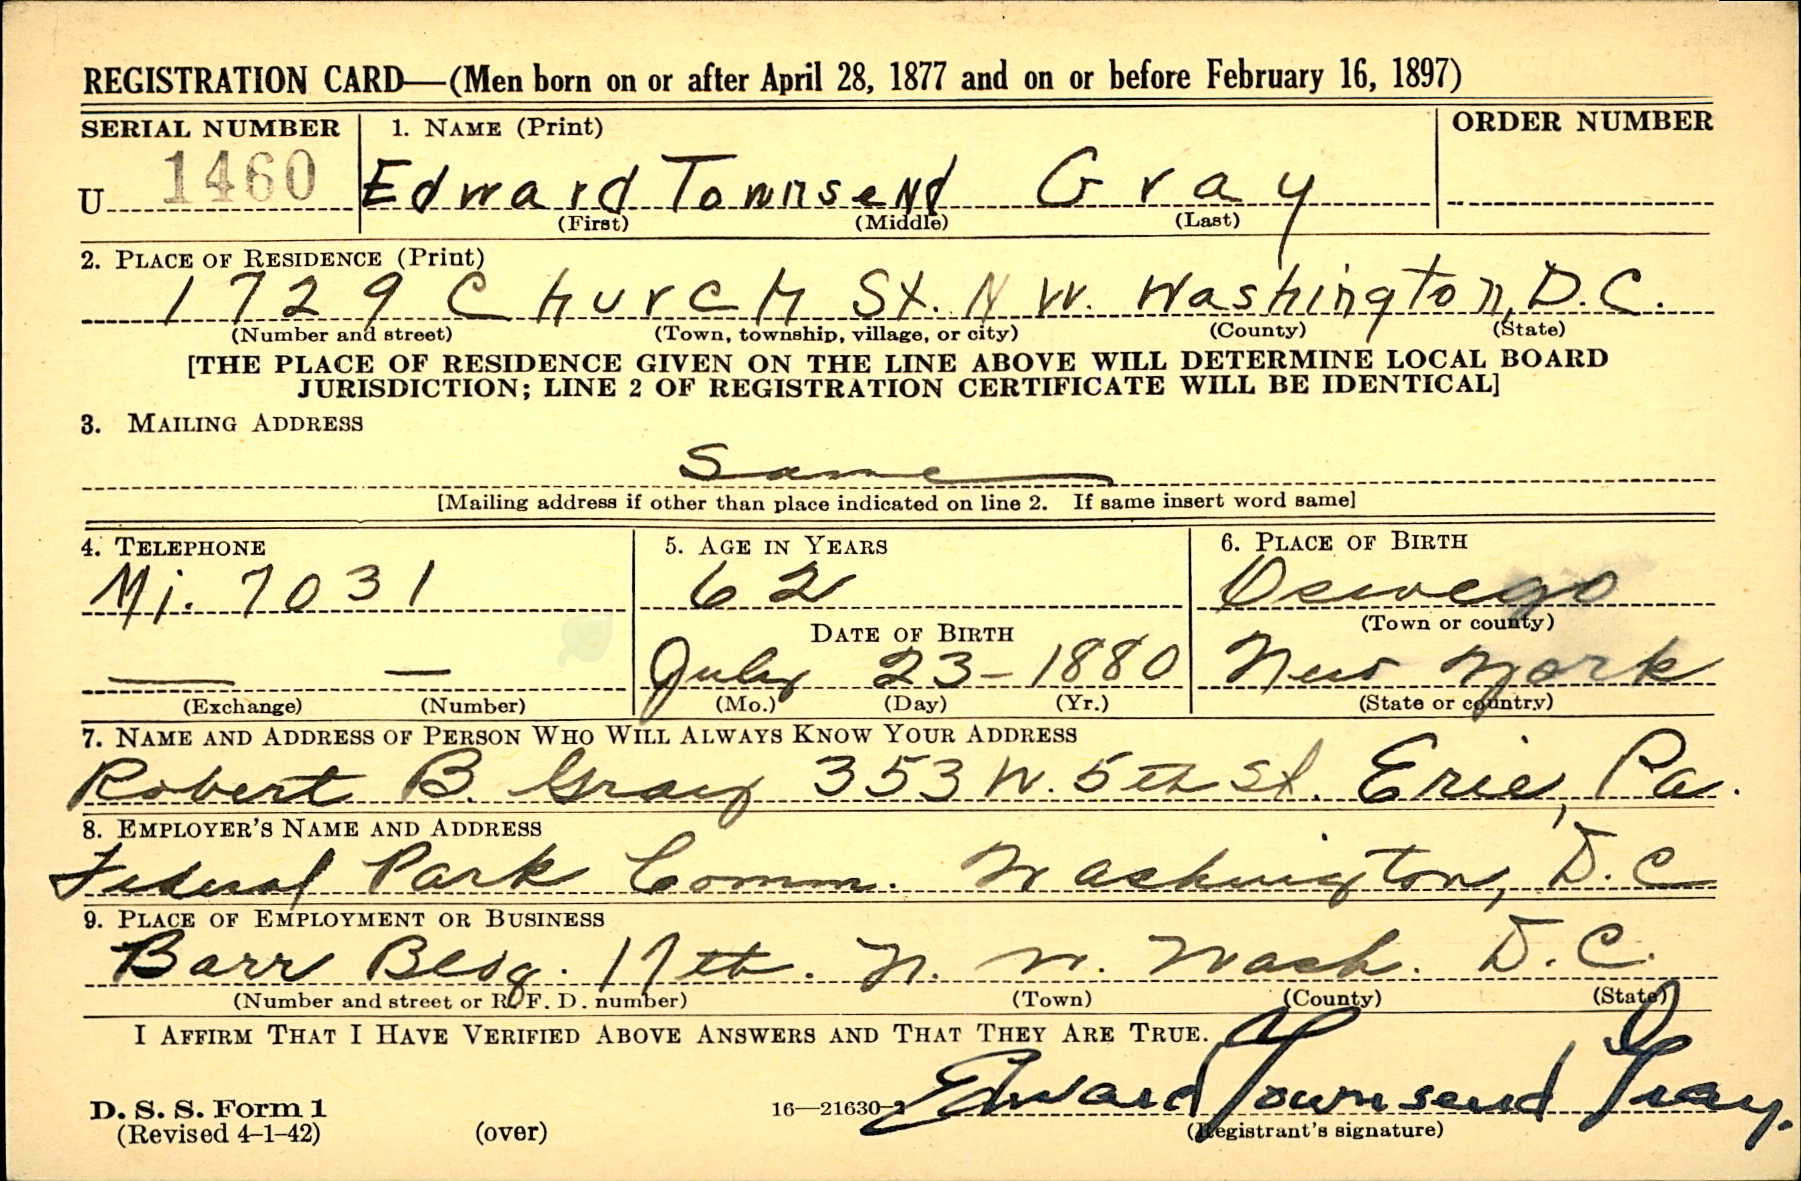 REGISTRATION CARD—(Men born on or after April 28, 1877 and on or before February 16, 1897)
SERIAL NUMBER 1. NAME (Print) ORDER NUMBER
U 1460 Edward Townsend Gray
(First) (Middle) (Last)
2. PLACE OF RESIDENCE (Print)
1729 Church St. N W. Washington, D.C.
(Number and street) (Town, township, village, or city) (County) (State)
[THE PLACE OF RESIDENCE GIVEN ON THE LINE ABOVE WILL DETERMINE LOCAL BOARD
JURISDICTION; LINE 2 OF REGISTRATION CERTIFICATE WILL BE IDENTICAL]
3. MAILING ADDRESS
Same
[Mailing address if other than place indicated on line 2. If same insert word same]
4. TELEPHONE 5. AGE IN YEARS 6. PLACE OF BIRTH
Mi. 7031 62 Oswego
DATE OF BIRTH (Town or county)
— — July 23-1880 New York
(Exchange) (Number) (Mo.) (Day) (Yr.) (State or country)
7. NAME AND ADDRESS OF PERSON WHO WILL ALWAYS KNOW YOUR ADDRESS
Robert B. Gray 353 W. 5th St. Erie, Pa.
8. EMPLOYER'S NAME AND ADDRESS
Federal Park Comm. Washington, D.C
9. PLACE OF EMPLOYMENT OR BUSINESS
Barr Bldg. 17th. N. W. Wash. D.C.
(Number and street or R. F. D. number) (Town) (County) (State)
I AFFIRM THAT I HAVE VERIFIED ABOVE ANSWERS AND THAT THEY ARE TRUE.
Edward Townsend Gray.
D. S. S. Form 1 16—21630-2
(Revised 4-1-42) (over) (Registrant's signature)